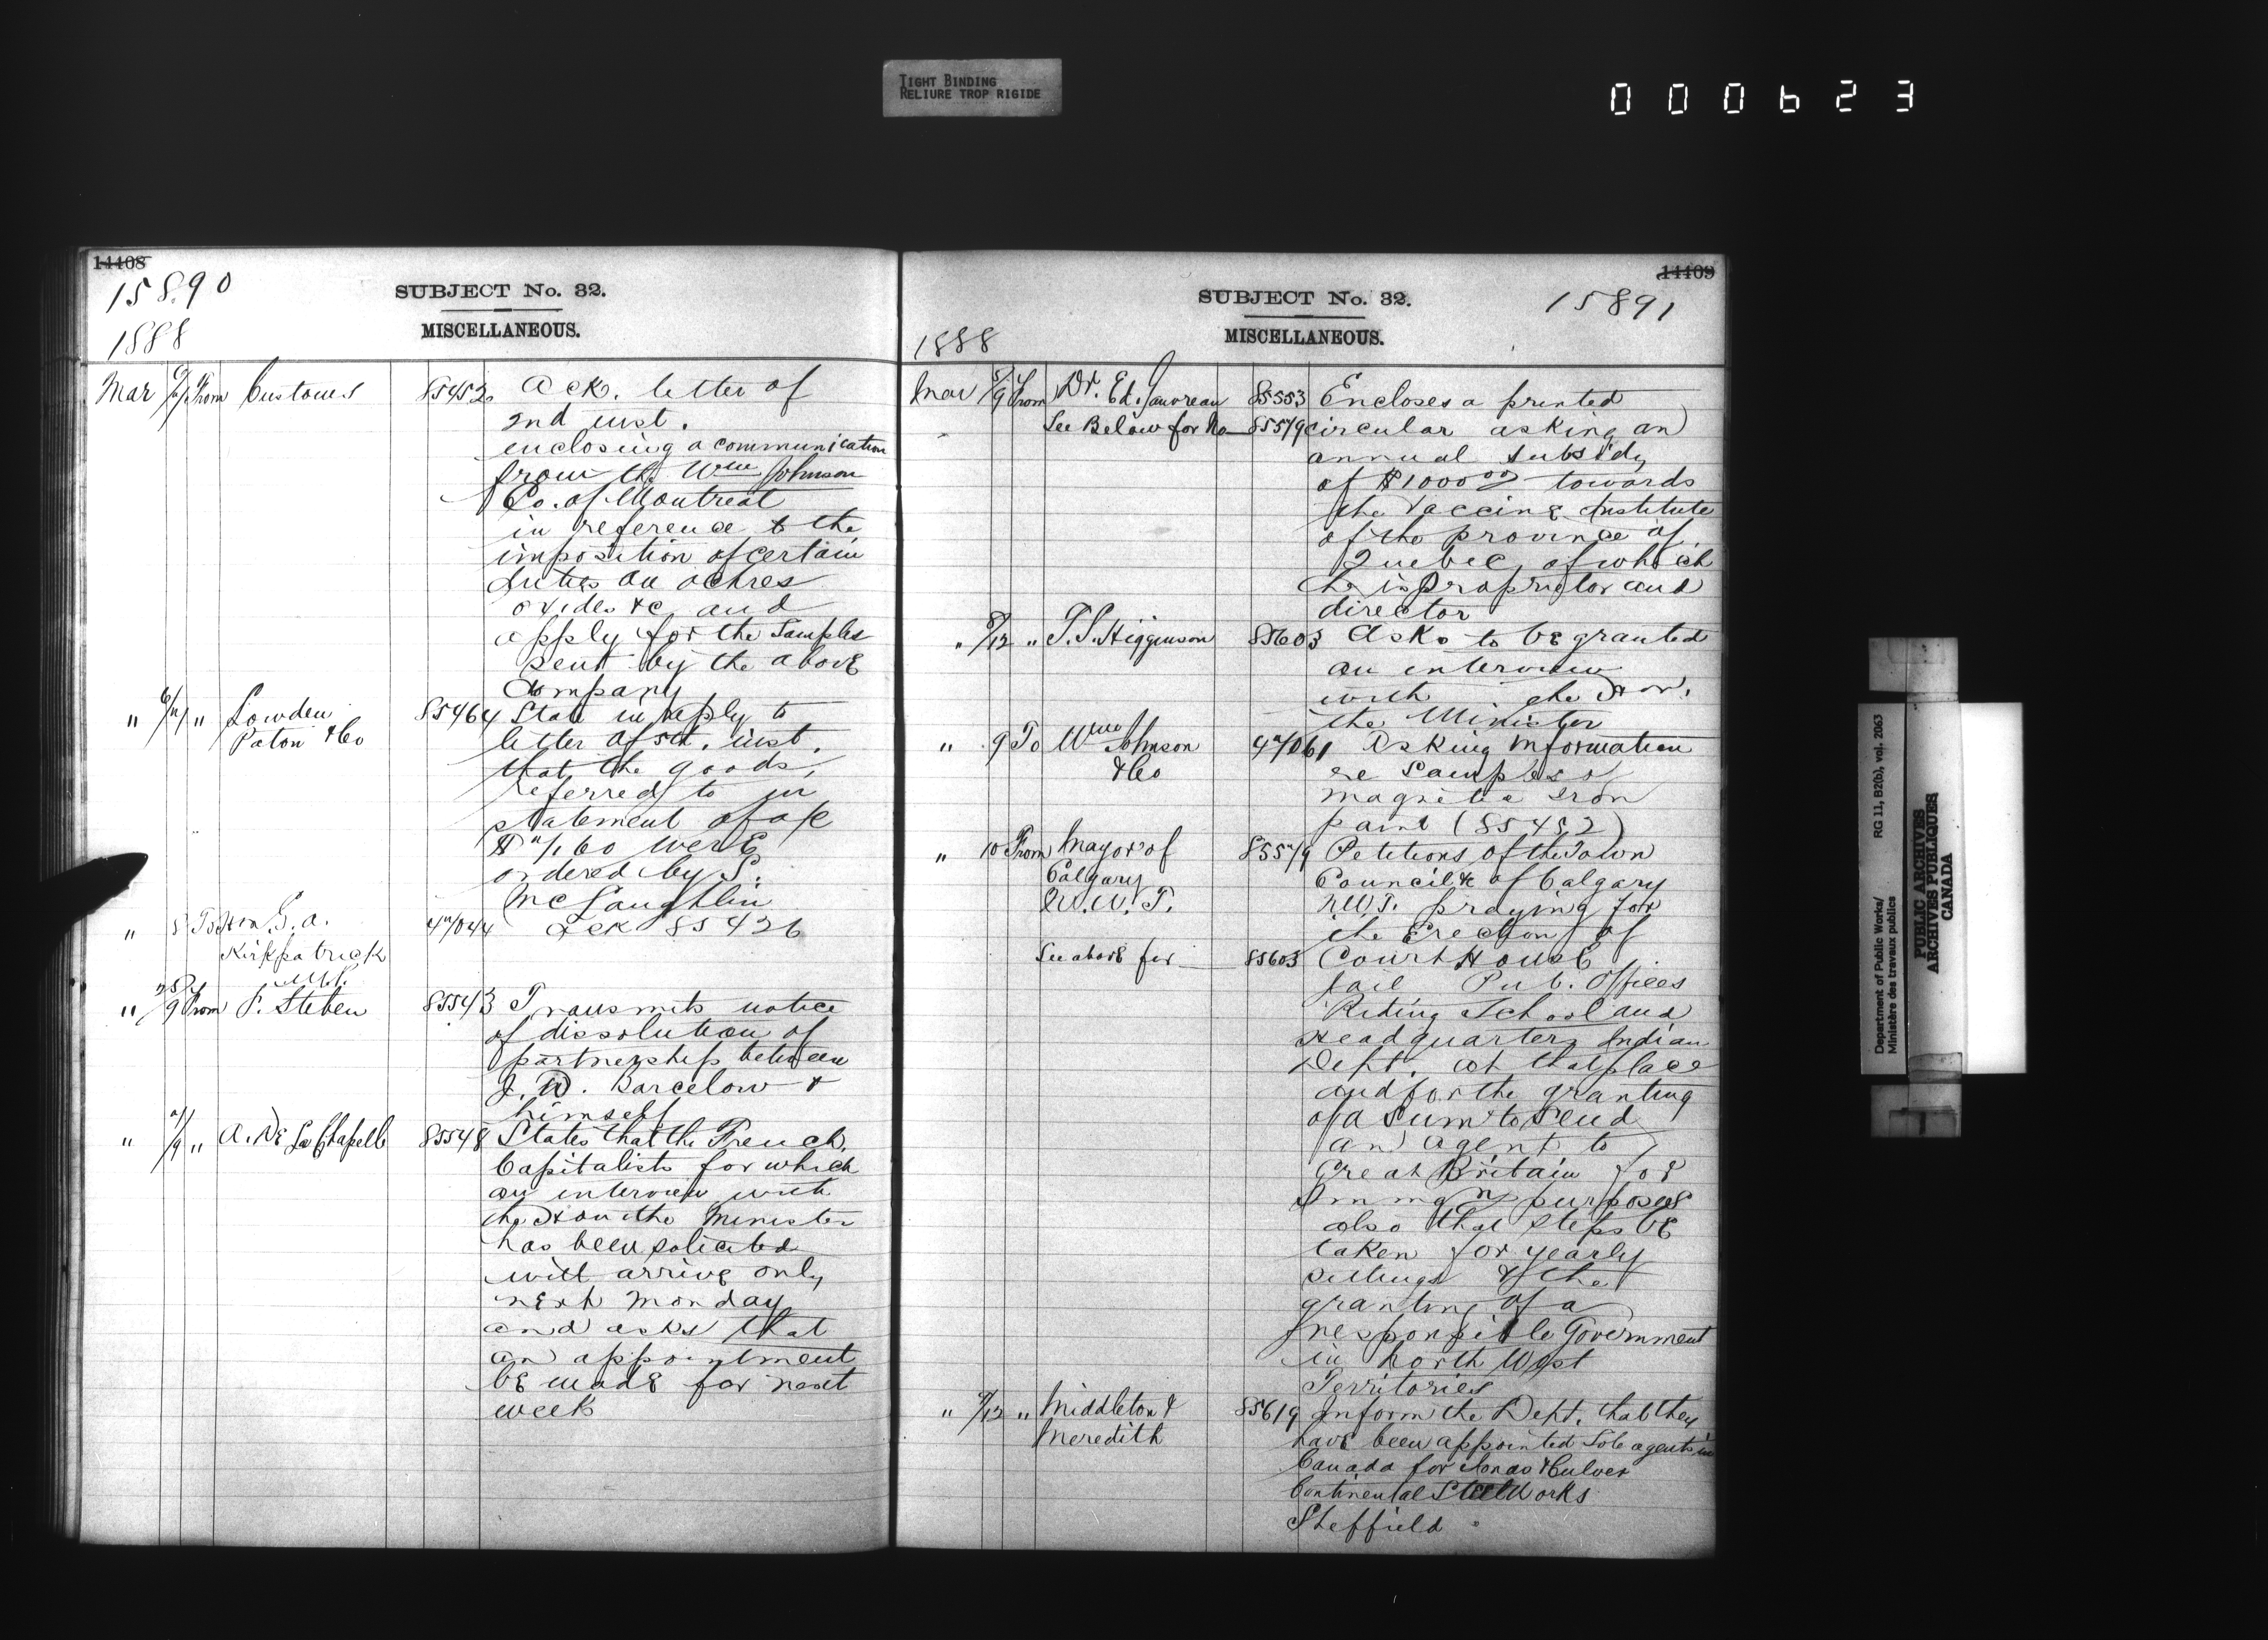 TIGHT BINDING
RELIURE TROP RIGIDE
000623
14408
15890
SUBJECT No. 32.
MISCELLANEOUS.
1888
Mar 6/7 From Customs 85452 Ack. letter of
2nd inst.
enclosing a communication
from the Wm Johnson
Co. of Montreal
in reference to the
imposition of certain
duties on ochres
oxides &c and
apply for the samples
sent by the above
Company
" 6/7 " Lowden 85464 State in reply to
Paton & Co letter of 5th. inst.
that the goods,
referred to in
statement of a/c
$ 7/60 were
ordered by S.
McLaughlin
" 8 To Hon. G. A. 47044 Ack 85426
Kirkpatrick
M.P.
" 9 From P. Steben 85543 Transmits notice
of dissolution of
partnership between
J. W. Barcelow &
himself
" 7/9 " A. De La Chapelle 85548 States that the French
Capitalists for which
an interview with
the Hon the Minister
has been solicited
will arrive only
next Monday
and asks that
an appointment
be made for next
week
14409
15891
SUBJECT No. 32.
MISCELLANEOUS.
1888
Mar 8/9 From Dr. Ed. Gauvreau 85553 Encloses a printed
See Below for No 85579 circular asking an
annual subsidy
of $1000.00 towards
the Vaccine Institute
of the province of
Quebec, of which
he is Proprietor and
director
" 8/12 " T. S. Higginson 85603 Asks to be granted
an interview
with the Hon.
the Minister
" 9 To Wm Johnson 47061 Asking information
& Co re Samples of
magnetic Iron
paint (85452)
" 10 From Mayor of 85579 Petitions of the Town
Calgary Council &c of Calgary
N.W.T. N.W.T. praying for
the Erection of
See above for 85603 Court House
Jail Pub. Offices
Riding School and
Headquarters Indian
Dept. at that place
and for the granting
of a sum to send
an agent to
Great Britain for
Immign purposes
also that steps be
taken for yearly
sittings & the
granting of a
responsible Government
in North West
Territories
" 9/12 " Middleton & 85619 Inform the Dept. that they
Meredith have been appointed Sole agents in
Canada for Jonas & Culver
Continental Steel Works
Sheffield
Department of Public Works/ RG 11, B2(b), vol. 2063
Ministère des travaux publics
PUBLIC ARCHIVES
ARCHIVES PUBLIQUES
CANADA